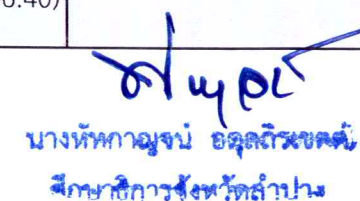 6.40)
นางหัทกาญจน์ อดุลถิรเขตต์
ศึกษาธิการจังหวัดลำปาง